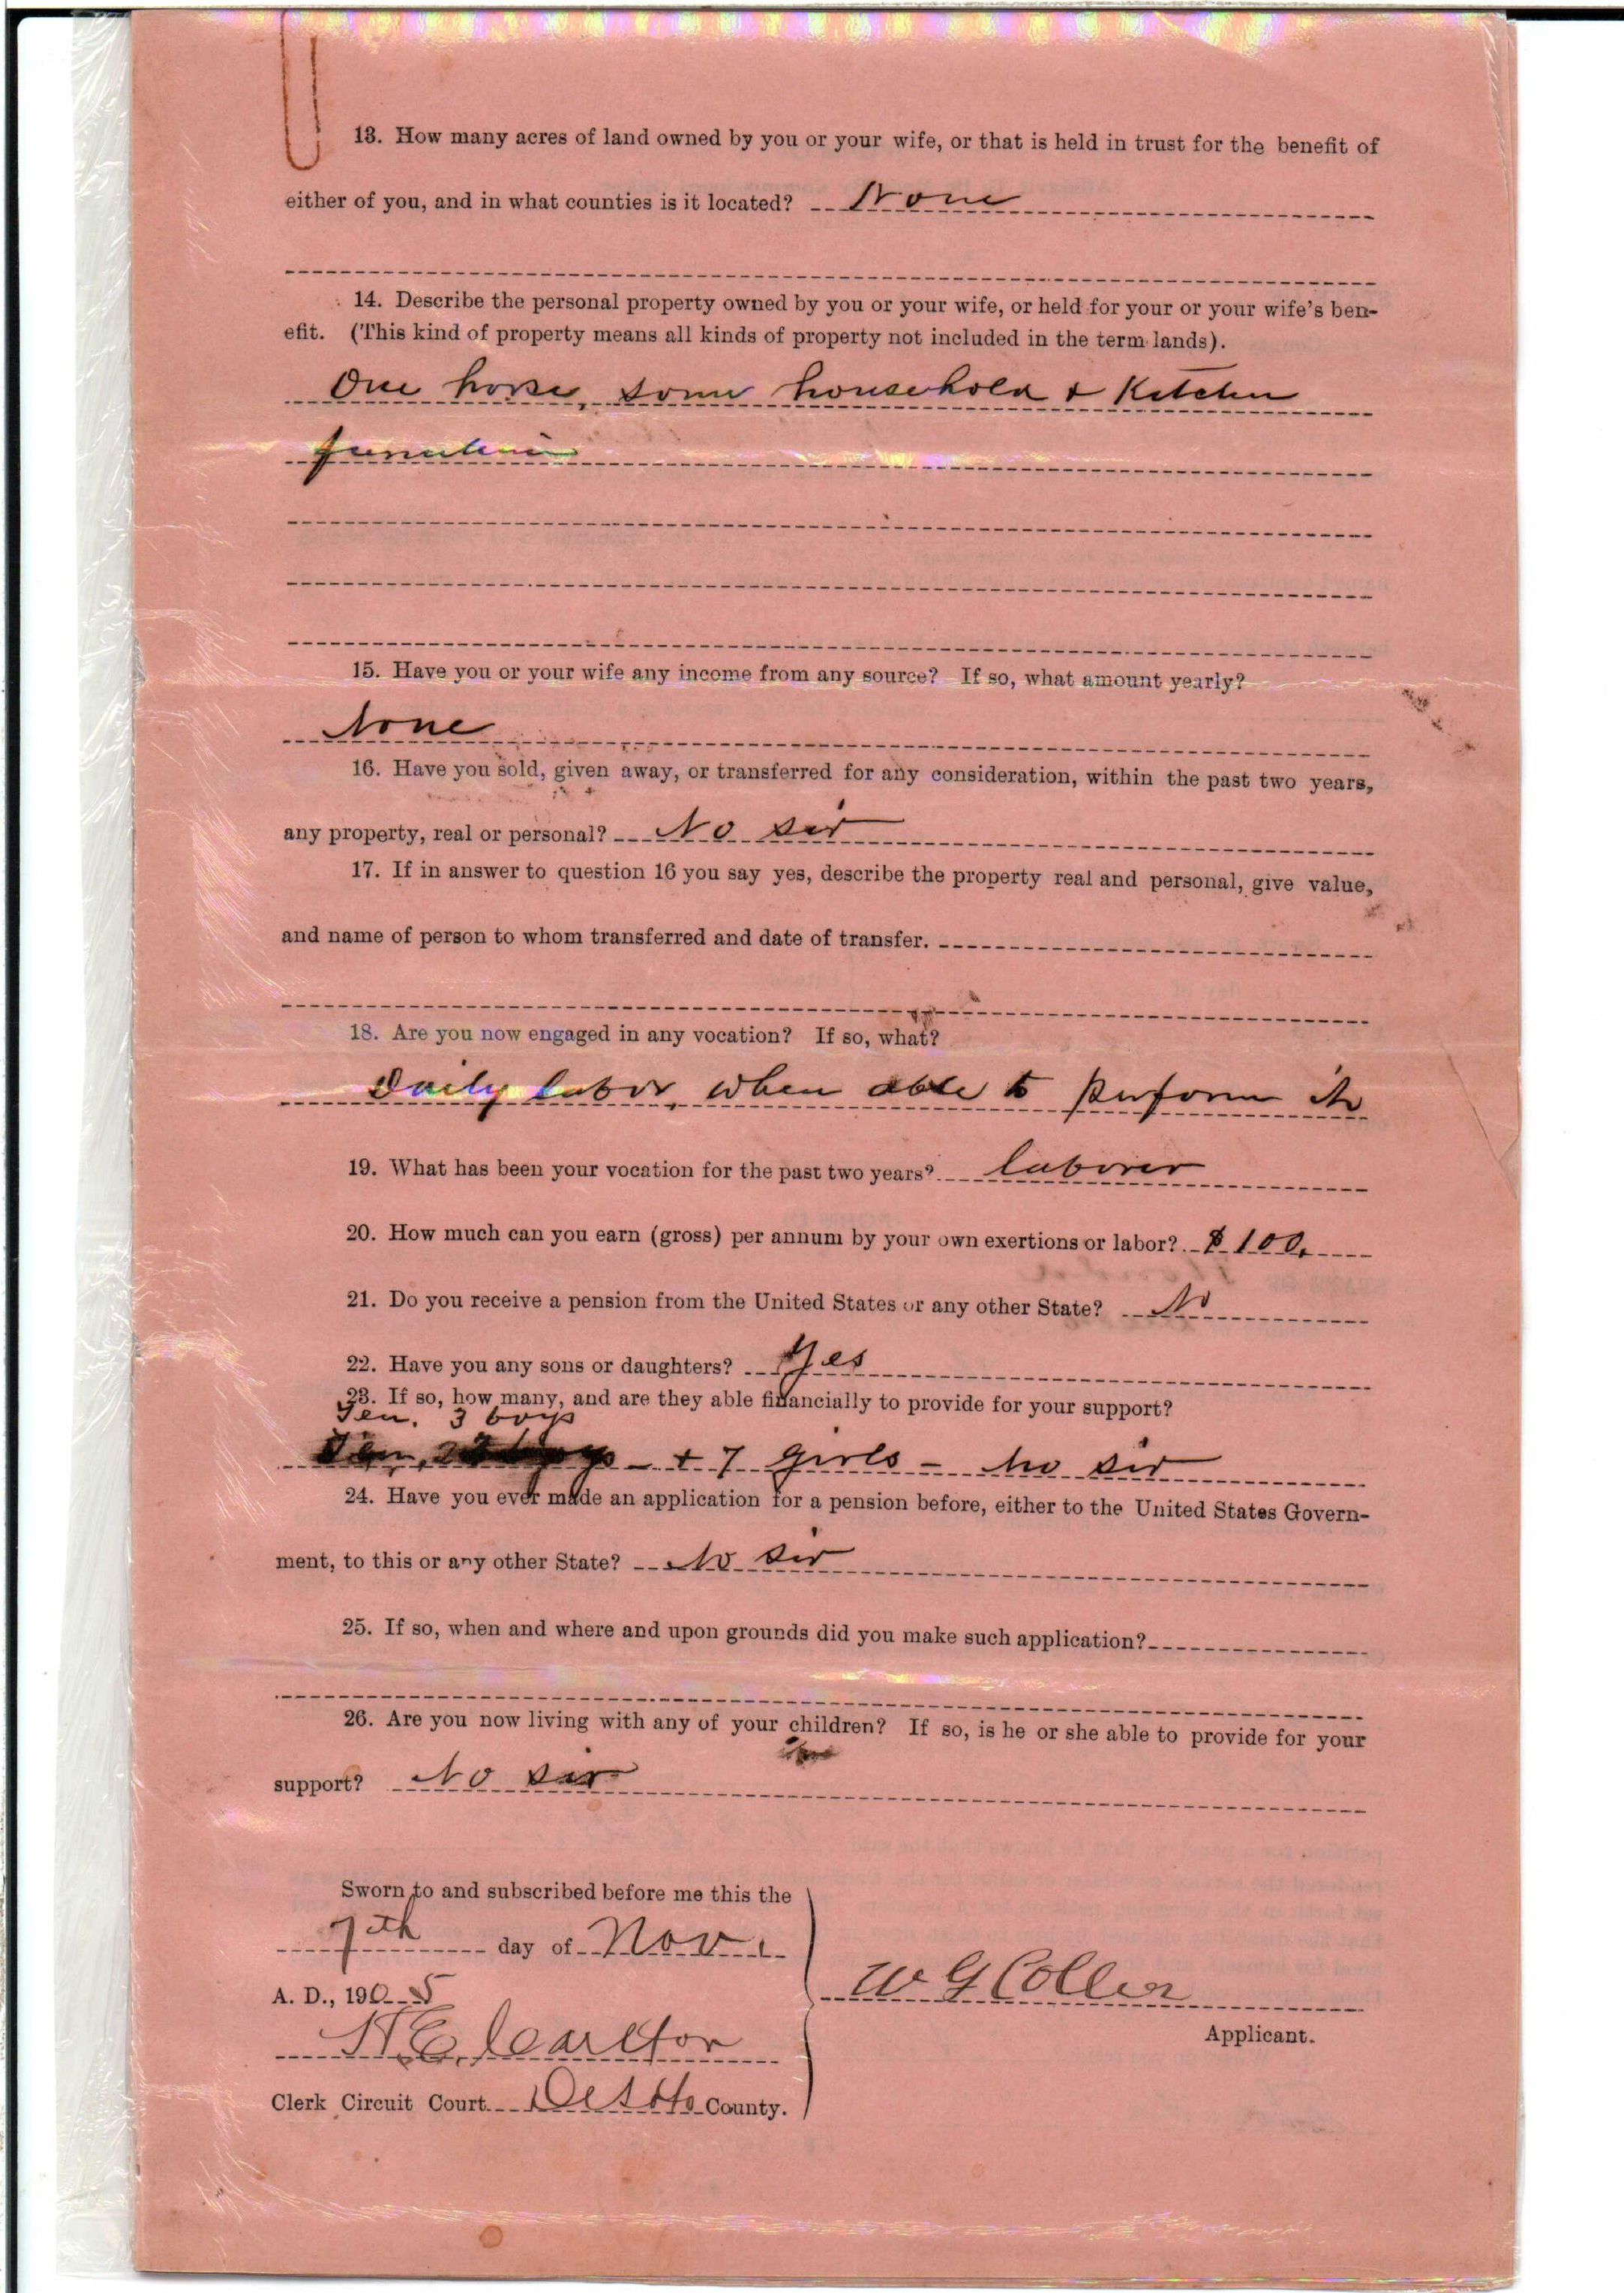 13. How many acres of land owned by you or your wife, or that is held in trust for the benefit of
either of you, and in what counties is it located? None
14. Describe the personal property owned by you or your wife, or held for your or your wife's ben-
efit. (This kind of property means all kinds of property not included in the term lands).
One horse, some household & Kitchen
furniture
15. Have you or your wife any income from any source? If so, what amount yearly?
None
16. Have you sold, given away, or transferred for any consideration, within the past two years,
any property, real or personal? No sir
17. If in answer to question 16 you say yes, describe the property real and personal, give value,
and name of person to whom transferred and date of transfer.
18. Are you now engaged in any vocation? If so, what?
Daily labor, when able to perform it
19. What has been your vocation for the past two years? laborer
20. How much can you earn (gross) per annum by your own exertions or labor? $100.
21. Do you receive a pension from the United States or any other State? No
22. Have you any sons or daughters? Yes
23. If so, how many, and are they able financially to provide for your support?
Ten. 3 boys
+ 7 girls - No sir
24. Have you ever made an application for a pension before, either to the United States Govern-
ment, to this or any other State? No sir
25. If so, when and where and upon grounds did you make such application?
26. Are you now living with any of your children? If so, is he or she able to provide for your
support? No sir
Sworn to and subscribed before me this the
7th day of Nov.
A. D., 190 5
W G Coller
Applicant.
H.E. Carlton
Clerk Circuit Court DeSoto County.